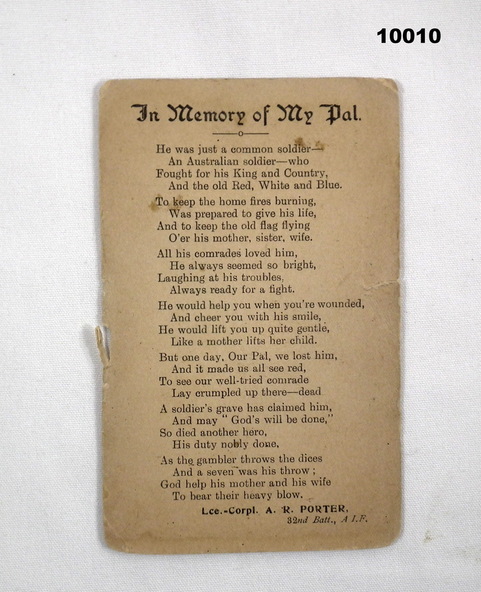 10010
In Memory of My Pal.
He was just a common soldier—
An Australian soldier—who
Fought for his King and Country,
And the old Red, White and Blue.
To keep the home fires burning,
Was prepared to give his life,
And to keep the old flag flying
O'er his mother, sister, wife.
All his comrades loved him,
He always seemed so bright,
Laughing at his troubles,
Always ready for a fight.
He would help you when you're wounded,
And cheer you with his smile,
He would lift you up quite gentle,
Like a mother lifts her child.
But one day, Our Pal, we lost him,
And it made us all see red,
To see our well-tried comrade
Lay crumpled up there—dead
A soldier's grave has claimed him,
And may " God's will be done,"
So died another hero,
His duty nobly done,
As the gambler throws the dices
And a seven was his throw ;
God help his mother and his wife
To bear their heavy blow.
Lce.-Corpl. A. R. PORTER,
32nd Batt., A I.F.